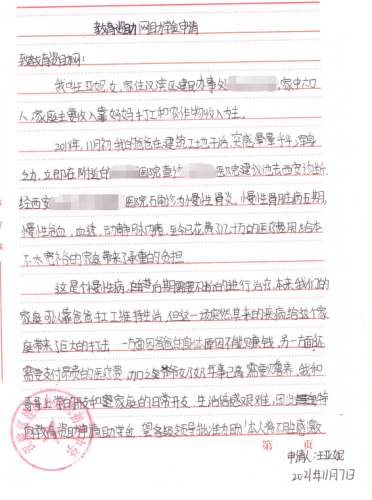 教育资助网助学金申请
致教育资助网：
我叫王亚妮,女,家住汉滨区建民办事处 家中六口
人,家庭主要收入靠妈妈打工和农作物收入为主。
2018年,11月初我的爸爸在建筑工地干活,突感晕晕乎乎,浑身
乏力,立即在附近的 医院查边 医院建议他去西安诊断.
经西安 医院 诊为慢性肾炎,慢性肾脏病五期,
慢性贫血,血透,动静脉内瘘,至今已花费了几十万的医疗费用,给本
不太富裕的家庭带来了承重的负担.
这是个慢性病,后期需要不断的进行治疗,本来我们的
家庭可以靠爸爸打工维持生活,但这一场突然其来的疾病给这个家
庭带来了巨大的打击,一方面因爸爸的身体原因不能以赚钱,另一方面还
需要支付昂贵的医疗费,加之爷爷奶奶年事已高,需要赡养,我和
哥哥上学的开支和家庭的日常开支,生活倍感艰难,因此特
向教育资助申请助学金,望各级领导批准为盼!本人将不胜感激
第 页
申请人:王亚妮
2021年11月7日